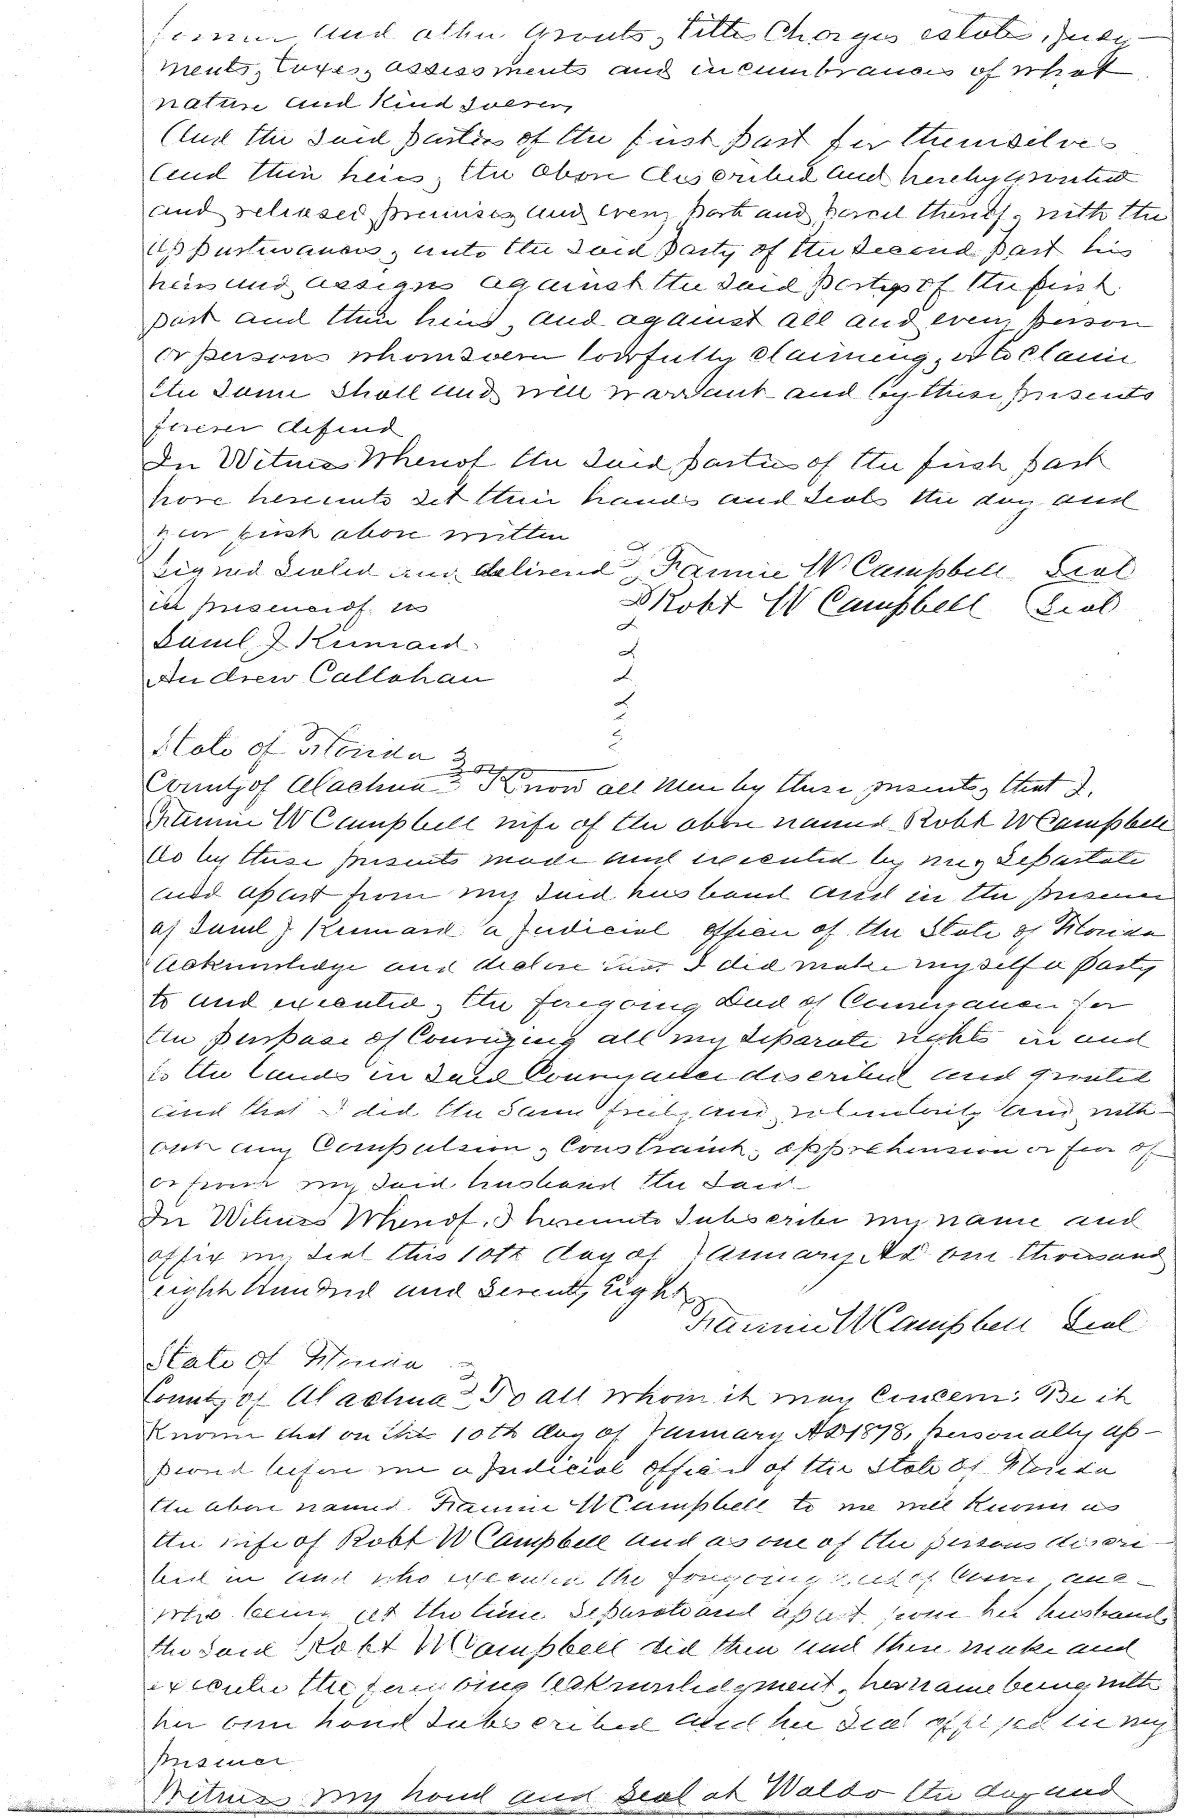 former and other Grants, titles Charges estate, Judg-
ments, taxes, assessments and incumbrances of what
nature and Kind soever,
And the said parties of the first part for themselves
and their heirs, the above described and hereby granted
and released premises and every part and parcel thereof, with the
appurtenances, unto the said party of the Second part his
heirs and assigns against the said partys of the first
part and their heirs, and against all and every person
or persons whomsoever lawfully claiming, or to claim
the same shall and will warrant and by these presents
forever defend
In Witness Whereof the said parties of the first part
have hereunto set their hands and seals the day and
year first above written
Signed Sealed and delivered Fannie W Campbell Seal
in presence of us Robt W Campbell Seal
Saml J Kennard
Andrew Callahan
State of Florida
County of Alachua Know all Men by these presents, that I,
Fannie W Campbell wife of the above named Robt W Campbell
do by these presents made and executed by me, Separate
and apart from my said husband and in the presence
of Saml J Kennard a Judicial officer of the State of Florida
Acknowledge and declare that I did make myself a party
to and executed, the foregoing Deed of Conveyance for
the purpose of Conveying all my separate rights in and
to the lands in said Conveyance described and granted
and that I did the same freely and voluntarily and with-
out any Compulsion, Constraint, apprehension or fear of
or from my said husband the said
In Witness Whereof, I hereunto Subscribe my name and
affix my Seal this 10th day of January, AD one thousand
eight hundred and Seventy Eight
Fannie W Campbell Seal
State of Florida
County of Alachua To all whom it may Concern: Be it
Known that on this 10th day of January AD 1878, personally ap-
peared before me a Judicial officer of the State of Florida
the above named Fannie W Campbell to me well Known as
the wife of Robt W Campbell and as one of the persons descri-
bed in and who executed the foregoing deed of
who being at the time Separate and apart from her husband,
the said Robt W Campbell did then and there make and
execute the foregoing Acknowledgment, her name being with
her own hand Subscribed and her Seal affixed in my
presence
Witness my hand and seal at Waldo the day and